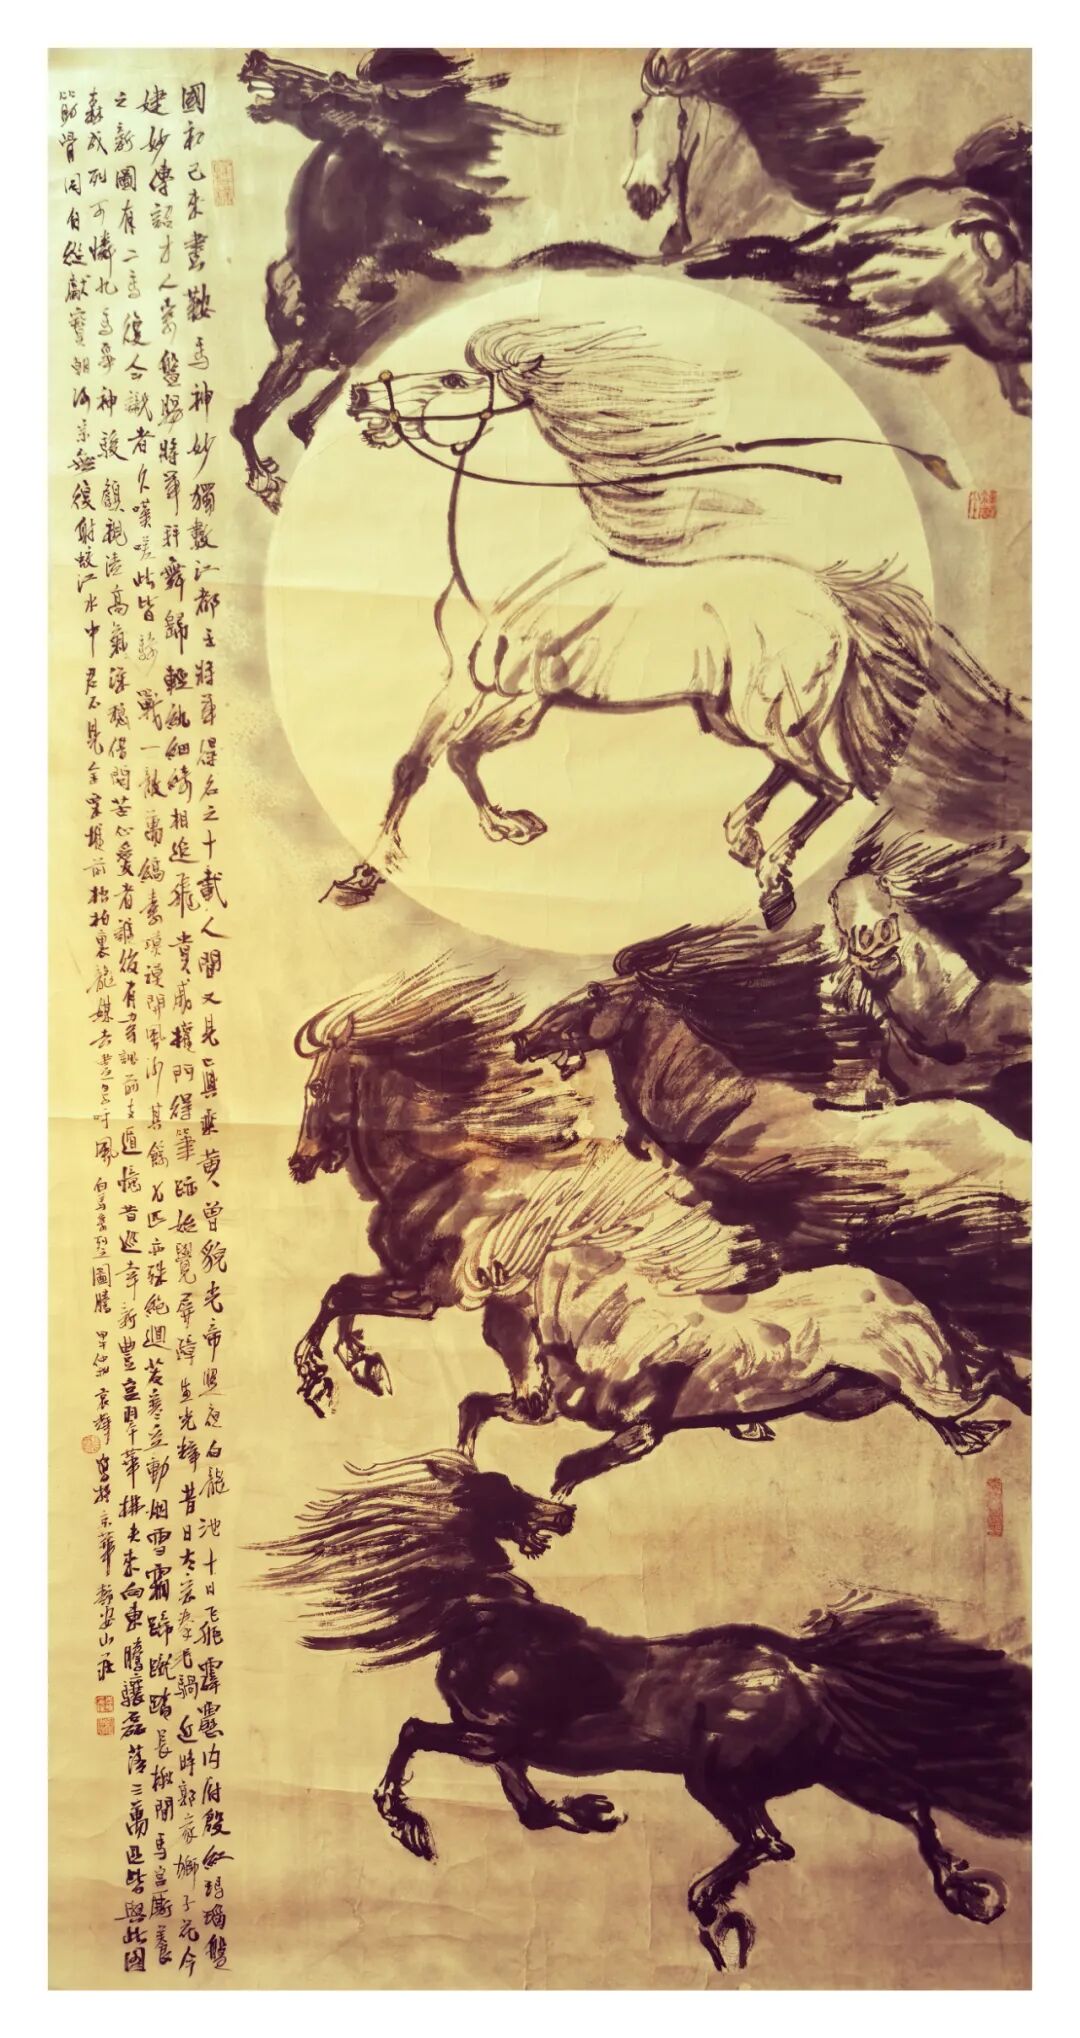 國初已來畫鞍馬神妙獨數江都王將軍得名之十載人間又見真乘黃曾貌先帝照夜白龍池十日飛霹靂內府殷紅瑪瑙盤
婕妤傳詔才人索盤賜將軍拜舞歸輕紈細綺相追飛貴戚權門得筆跡始覺屏障生光輝昔日太宗拳毛騧近時郭家獅子花今
之新圖有二馬復令識者久嘆嗟此皆騎戰一敵萬縞素漠漠開風沙其餘七匹亦殊絕迥若寒空動烟雪霜蹄蹴踏長楸間馬官廝養
森成列可憐九馬爭神駿顧視清高氣深穩借問苦心愛者誰後有韋諷前支遁憶昔巡幸新豐宮翠華拂天來向東騰驤磊落三萬匹皆與此圖
筋骨同自從獻寶朝河宗無復射蛟江水中君不見金粟堆前松柏裏龍媒去盡鳥呼風 白馬圖騰 仲秋 袁輝 寫於京華靜安山莊